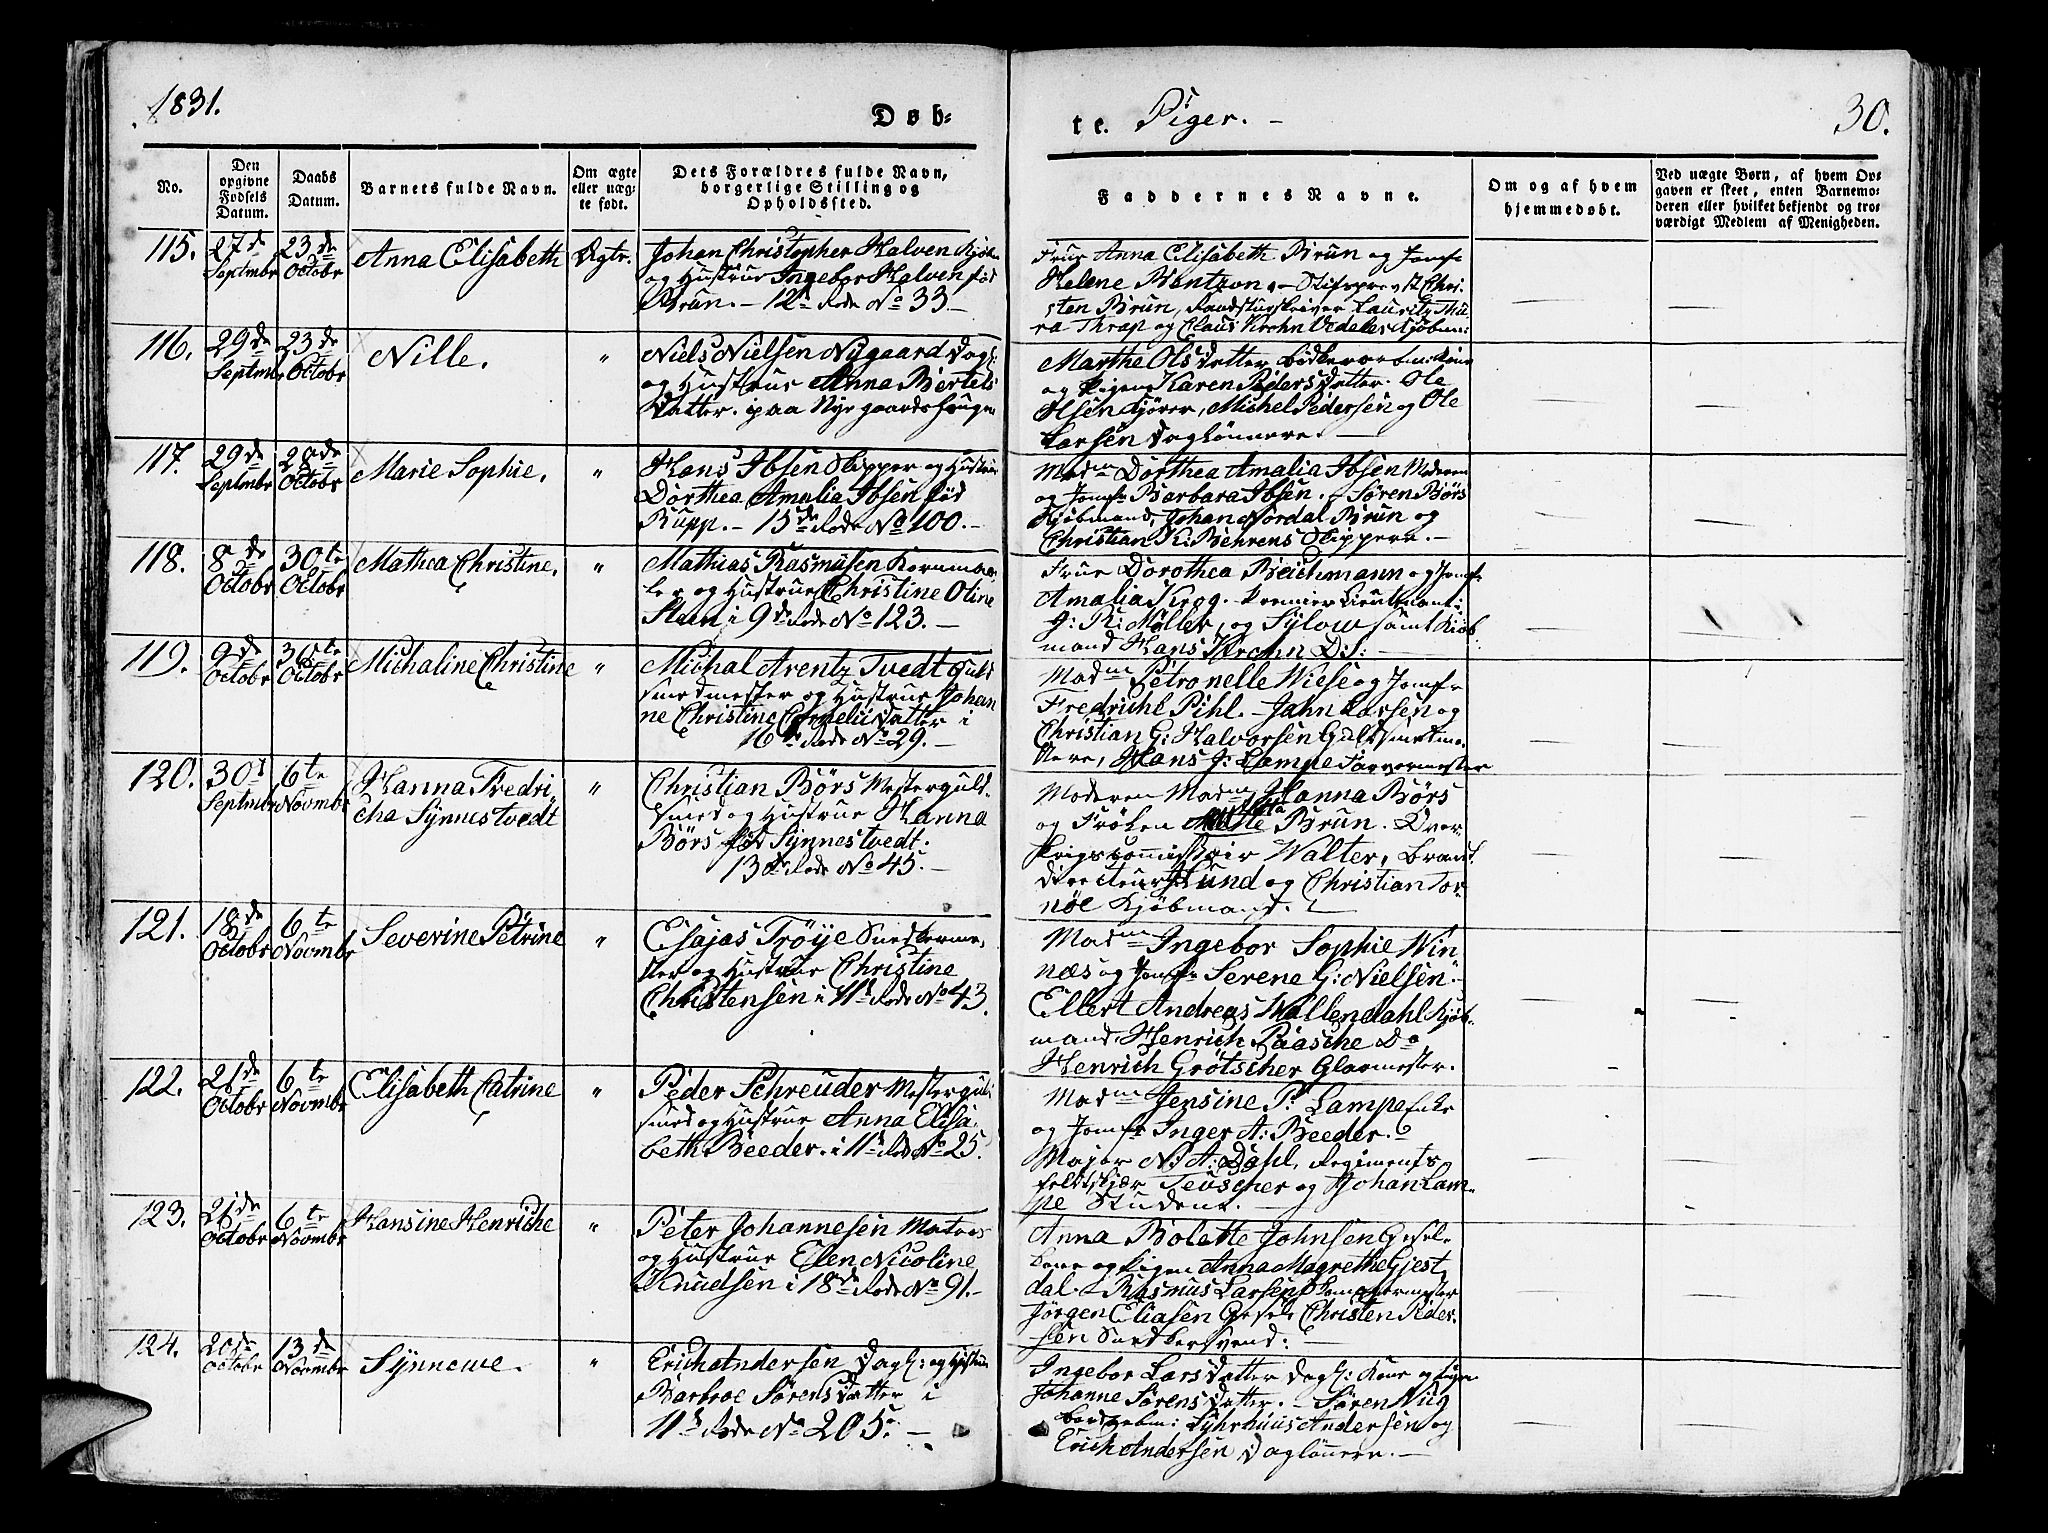 1831.
Døb-
te. Piger. -
30.
No.
Den opgivne Fødsels Datum.
Daabs Datum.
Barnets fulde Navn.
Om ægte eller uægte født.
Dets Forældres fulde Navn, borgerlige Stilling og Opholdssted.
Faddernes Navne.
Om og af hvem hjemmedøbt.
Ved uægte Børn, af hvem Opgaven er skeet, enten Barnemoderen eller hvilket bekjendt og troværdigt Medlem af Menigheden.
115. 27de Septmbr 23de Octobr Anna Elisabeth Ægte.
Johan Christopher Halven Kjøbm
og Hustrue Ingebor Halven fød
Brun. - 12te Rode No 33 -
Frue Anna Elisabeth Brun og Jomfr
Helene Bentzon - Stiftsprovst Chri-
sten Brun, Lauritz Thu-
ra Thrap og Claus Krohn Vedeler Kjøbm:
116. 29de Septmbr 23de Octobr Nille. "
Niels Nielsen Nygaard Dagl:
og Hustrue Anna Bertels
Datter. paa Nye gaards
Marthe Olsdatter Kone
og Pigen Karen Pedersdatter. Ole
Olsen Kjører, Michel Pedersen og Ole
Larsen Daglønnere. -
117. 29de Septmbr 23de Octobr Marie Sophie. "
Hans Ibsen Skipper og Hustrue
Dorthea Amalia Ibsen fød
Rupp. - 15de Rode No 100. -
Madm Dorthea Amalia Ibsen Moderen
og Jomfr Barbara Ibsen. - Søren Børs
Kjøbmand, Johan Nordal Brun og
Christian K: Behrens Skippere. -
118. 8de Octobr 30te Octobr Mathea Christine. "
Mathias Rasmusen Kornmaa-
ler og Hustrue Christine Oline
Steen i 9de Rode No 123. -
Frue Dorothea Beichmann og Jomfr
Amalia Krog. Premier Lieutenant:
J: R: Møller, og Sylow samt Kjøb-
mand Hans Krohn D: S: -
119. 9de Octobr 30te Octobr Michaline Christine "
Michal Arentz Tvedt Guld
smedmester og Hustrue Johan
ne Christine Cornelii Datter i
16de Rode No 29. -
Madm Petronelle Wiese og Jomfr
Fredrichl Pihl. - Jahn Larsen og
Christian G: Halvorsen Guldsmedme-
stere, Hans J: Lampe Farvermester
120. 30te Septmbr 6te Novmbr Hanna Fredri
cha Synnestvedt "
Christian Børs Mesterguld-
smed og Hustrue Hanna
Børs fød Synnestvedt.
13de Rode No 45. -
Moderen Madm Hanna Børs
og Frøken Brun. Over
krigscommissair Walter, Brand
directeur Lund og Christian Tor-
nøe Kjøbmand.
121. 18de Octobr 6te Novmbr Severine Petrine "
Esajas Trøye Snedkerme-
ster og Hustrue Christine
Christensen i 11te Rode No 43.
Madm Ingebor Sophie Win-
næs og Jomfr Serene G: Nielsen.
Ellert Andreas Wallendahl Kjøb-
mand Henrich Paasche Do
Henrich Grøtscher Glarmester.
122. 21de Octobr 6te Novmbr Elisabeth Catrine "
Peder Schreuder Mestergul-
smed og Hustrue Anna Elisa-
beth Beeder. i 11te Rode No 25.
Madm Jensine P: Lampe Enke
og Jomfr Inger A: Beeder.
Major N: A: Dahl, Regiments
feldtskjær Teuscher og Johan Lam-
pe Student. -
123. 21de Octobr 6te Novmbr Hansine Henriche "
Peter Johannesen Matros
og Hustrue Elen Nicoline
Knudsen i 18de Rode No 91. -
Anna Bolette Johnsen Gesel-
kone og Pigen Anna Magrethe Gjest
dal. Rasmus Larsen
Jørgen Eliasen Gesel Christen Peder-
sen Snedkersvend:
124. 20de Octobr 13de Novmbr Synnewe. "
Erich Andersen Dagl: og Hustrue
Barbroe Sørensdatter i
11te Rode No 205. -
Ingebor Larsdatter Dagl: Kone og Pigen
Johanne Sørensdatter. - Søren
Syhrhuus Andersen og
Erich Andersen Daglønnere. -